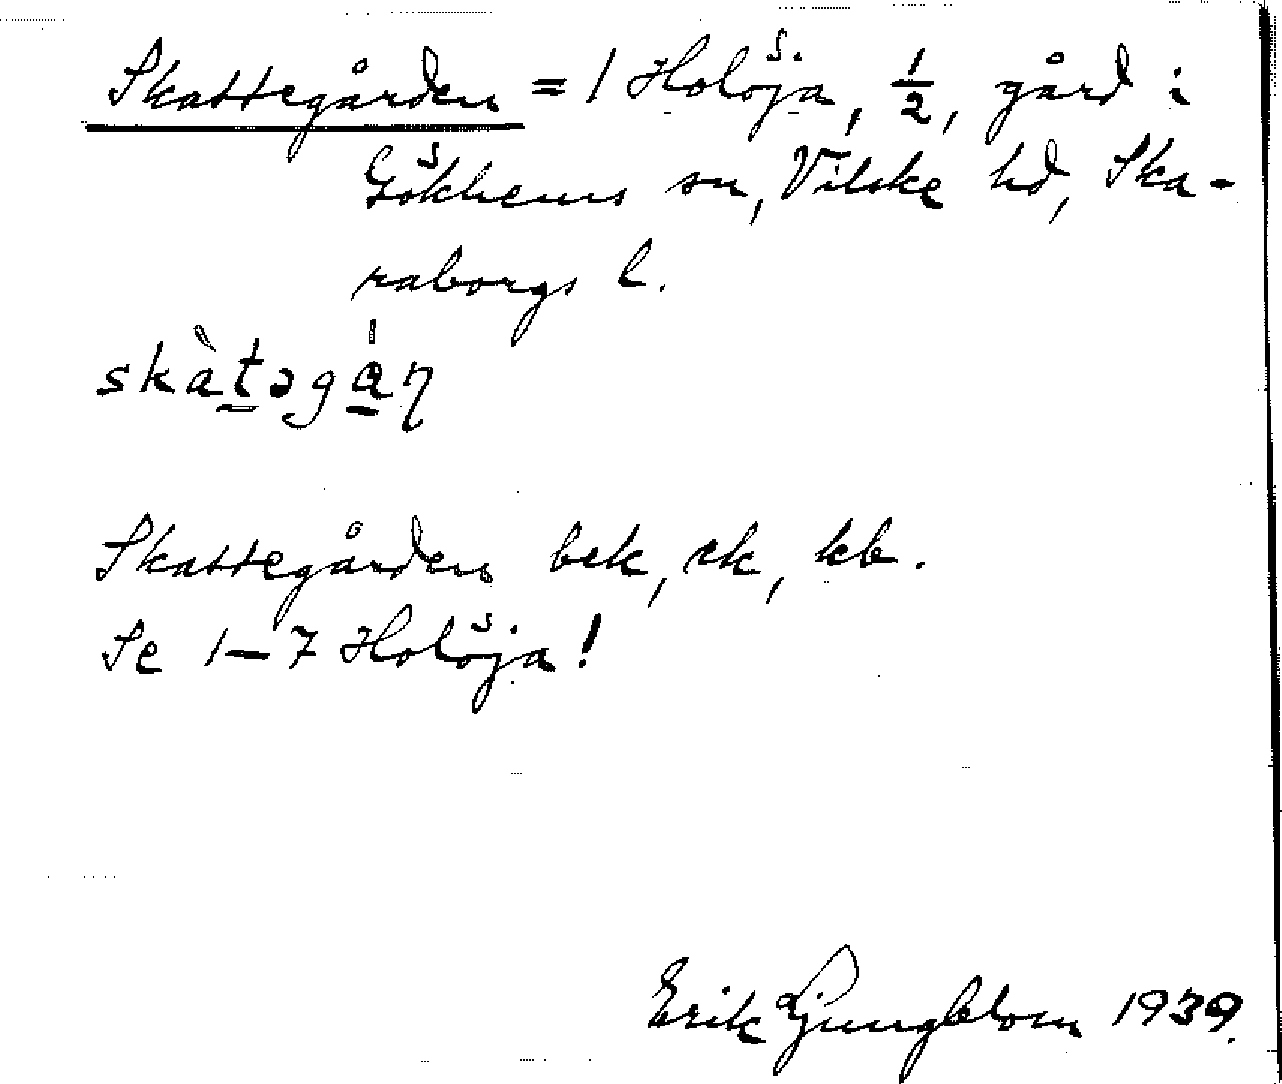 Skattegården = 1 Holöja, 1/2, gård i
Gökhems sn, Vilske hd, Ska-
raborgs l.
skàtəgån
Skattegården bek, rk, kb.
Se 1-7 Holöja!
Erik Ljungblom 1939.